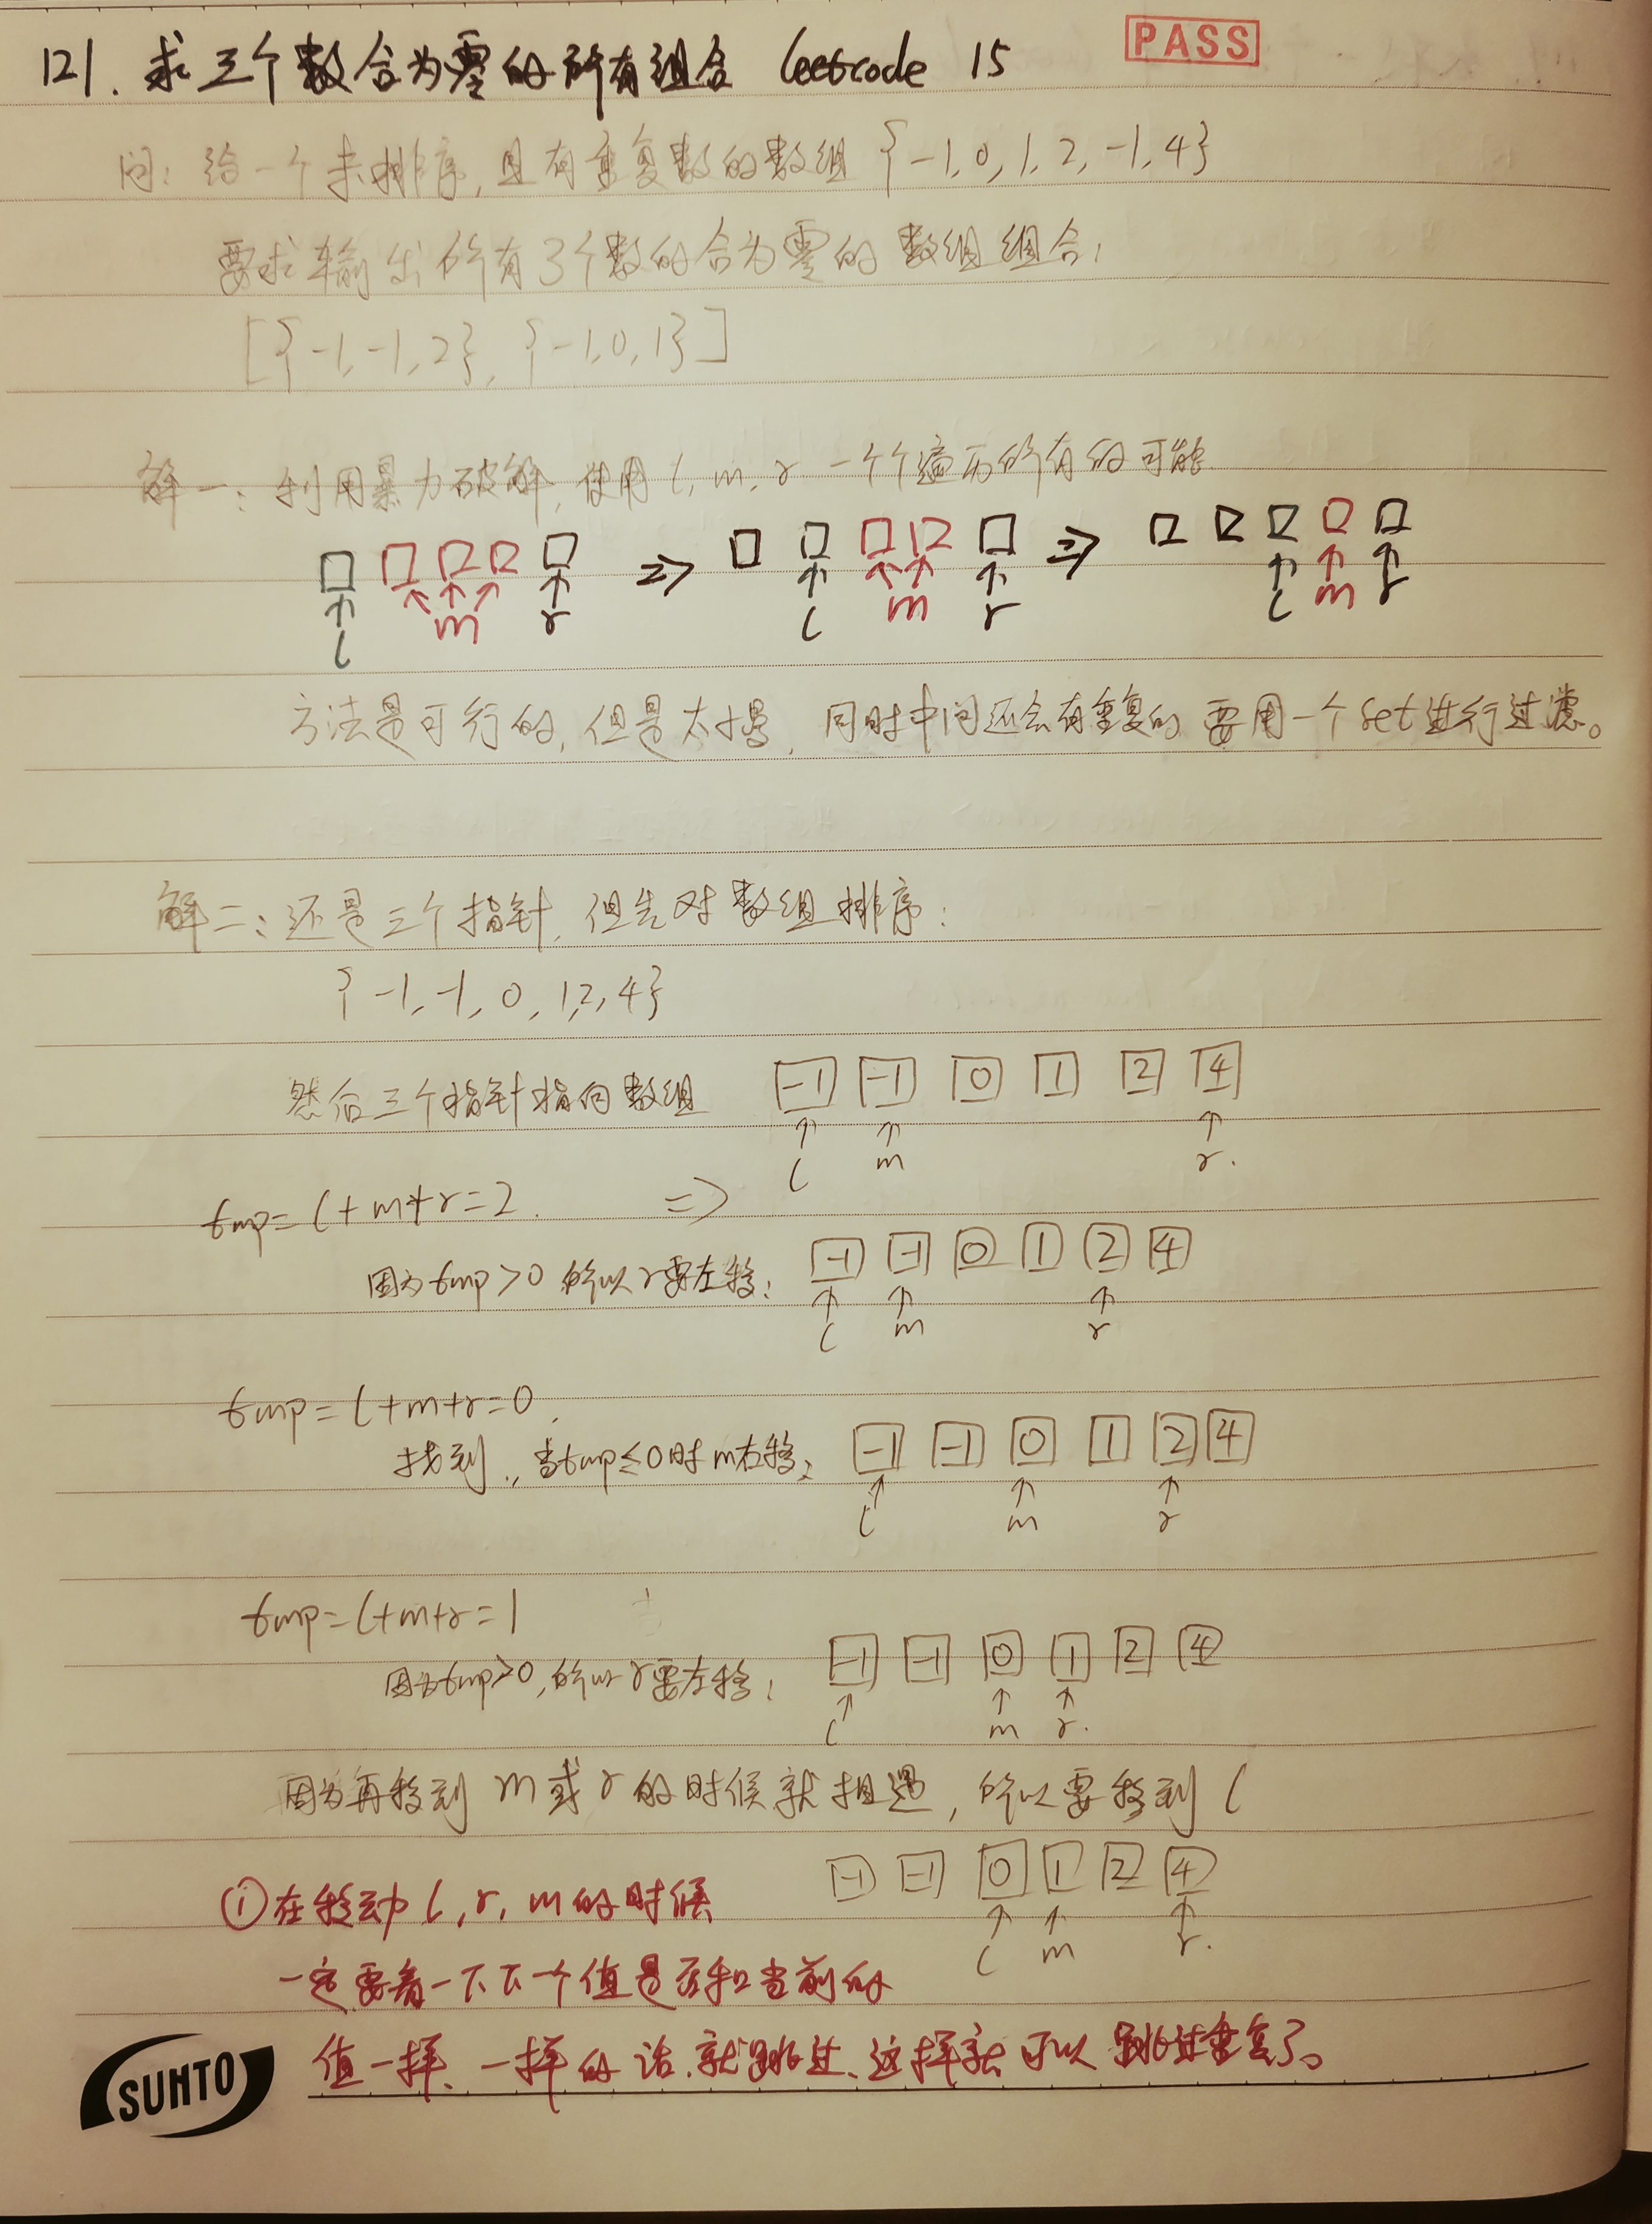 121. 求三个数合为零的所有组合 leetcode 15
PASS
问: 给一个未排序, 且有重复数的数组 {-1, 0, 1, 2, -1, 4}
要求输出所有3个数的合为零的数组组合;
[{-1, -1, 2}, {-1, 0, 1}]
解一: 利用暴力破解, 使用 l, m, r 一个个遍历所有的可能
⇒ ⇒
l m r l m r l m r
方法是可行的, 但是太慢, 同时中间还会有重复的 要用一个set进行过滤。
解二: 还是三个指针, 但先对数组排序:
{-1, -1, 0, 1, 2, 4}
然后三个指针指向数组 -1 -1 0 1 2 4
l m r.
tmp = l + m + r = 2. ⇒
因为tmp > 0 所以 r 要左移; -1 -1 0 1 2 4
l m r
tmp = l + m + r = 0.
找到, 当tmp ≤ 0 时 m右移; -1 -1 0 1 2 4
l m r
tmp = l + m + r = 1
因为tmp > 0, 所以 r 要左移; -1 -1 0 1 2 4
l m r.
因为再移到 m 或 r 的时候就相遇, 所以要移到 l
-1 -1 0 1 2 4
l m r.
① 在移动 l, r, m 的时候
一定要看一下下一个值是否和当前的
值一样、一样的话.就跳过、这样就可以跳过重复了。
SUNTO